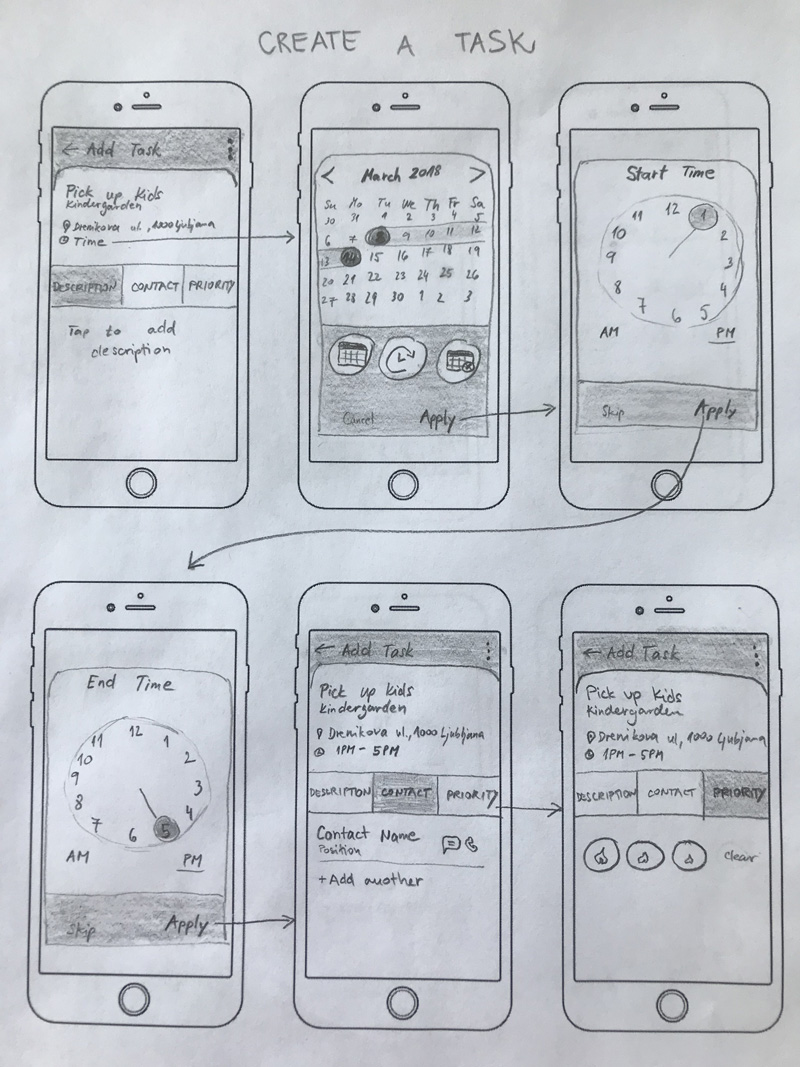 CREATE A TASK
← Add Task
Pick up Kids
Kindergarden
Drenikova ul., 1000 Ljubljana
Time
DESCRIPTION CONTACT PRIORITY
Tap to add
description
< March 2018 >
Su Mo Tu We Th Fr Sa
30 31 1 2 3 4 5
6 7 8 9 10 11 12
13 14 15 16 17 18 19
20 21 22 23 24 25 26
27 28 29 30 1 2 3
Cancel Apply
Start Time
12 1 2 3 4 5 6 7 8 9 10 11
AM PM
Skip Apply
End Time
12 1 2 3 4 5 6 7 8 9 10 11
AM PM
Skip Apply
← Add Task
Pick up Kids
Kindergarden
Drenikova ul., 1000 Ljubljana
1PM - 5PM
DESCRIPTION CONTACT PRIORITY
Contact Name
Position
+Add another
← Add Task
Pick up Kids
Kindergarden
Drenikova ul, 1000 Ljubljana
1PM - 5PM
DESCRIPTION CONTACT PRIORITY
clear